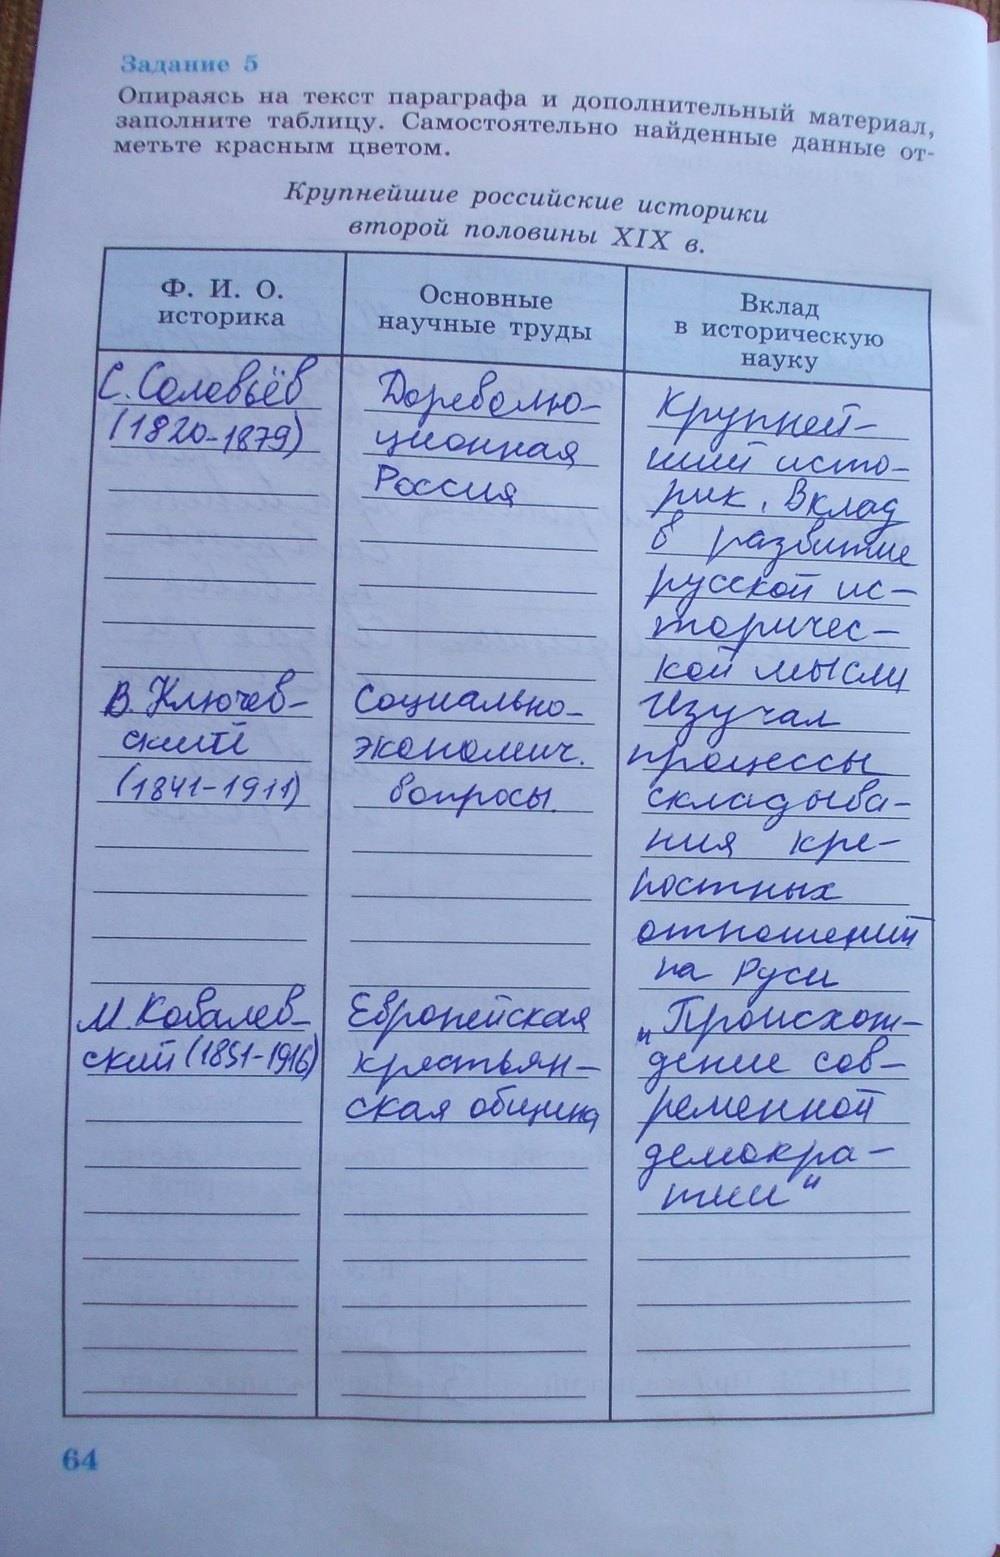 Задание 5
Опираясь на текст параграфа и дополнительный материал,
заполните таблицу. Самостоятельно найденные данные от-
метьте красным цветом.
Крупнейшие российские историки
второй половины XIX в.
Ф. И. О.
историка
Основные
научные труды
Вклад
в историческую
науку
С. Соловьёв
(1820-1879)
Дореволю-
ционная
Россия
Крупней-
ший исто-
рик. Вклад
в развитие
русской ис-
торичес-
кой мысли
В. Ключев-
ский
(1841-1911)
Социально-
экономич.
вопросы.
Изучал
процессы
складыва-
ния кре-
постных
отношений
на Руси
М. Ковалев-
ский (1851-1916)
Европейская
крестьян-
ская община
„Происхож-
дение сов-
ременной
демокра-
тии"
64